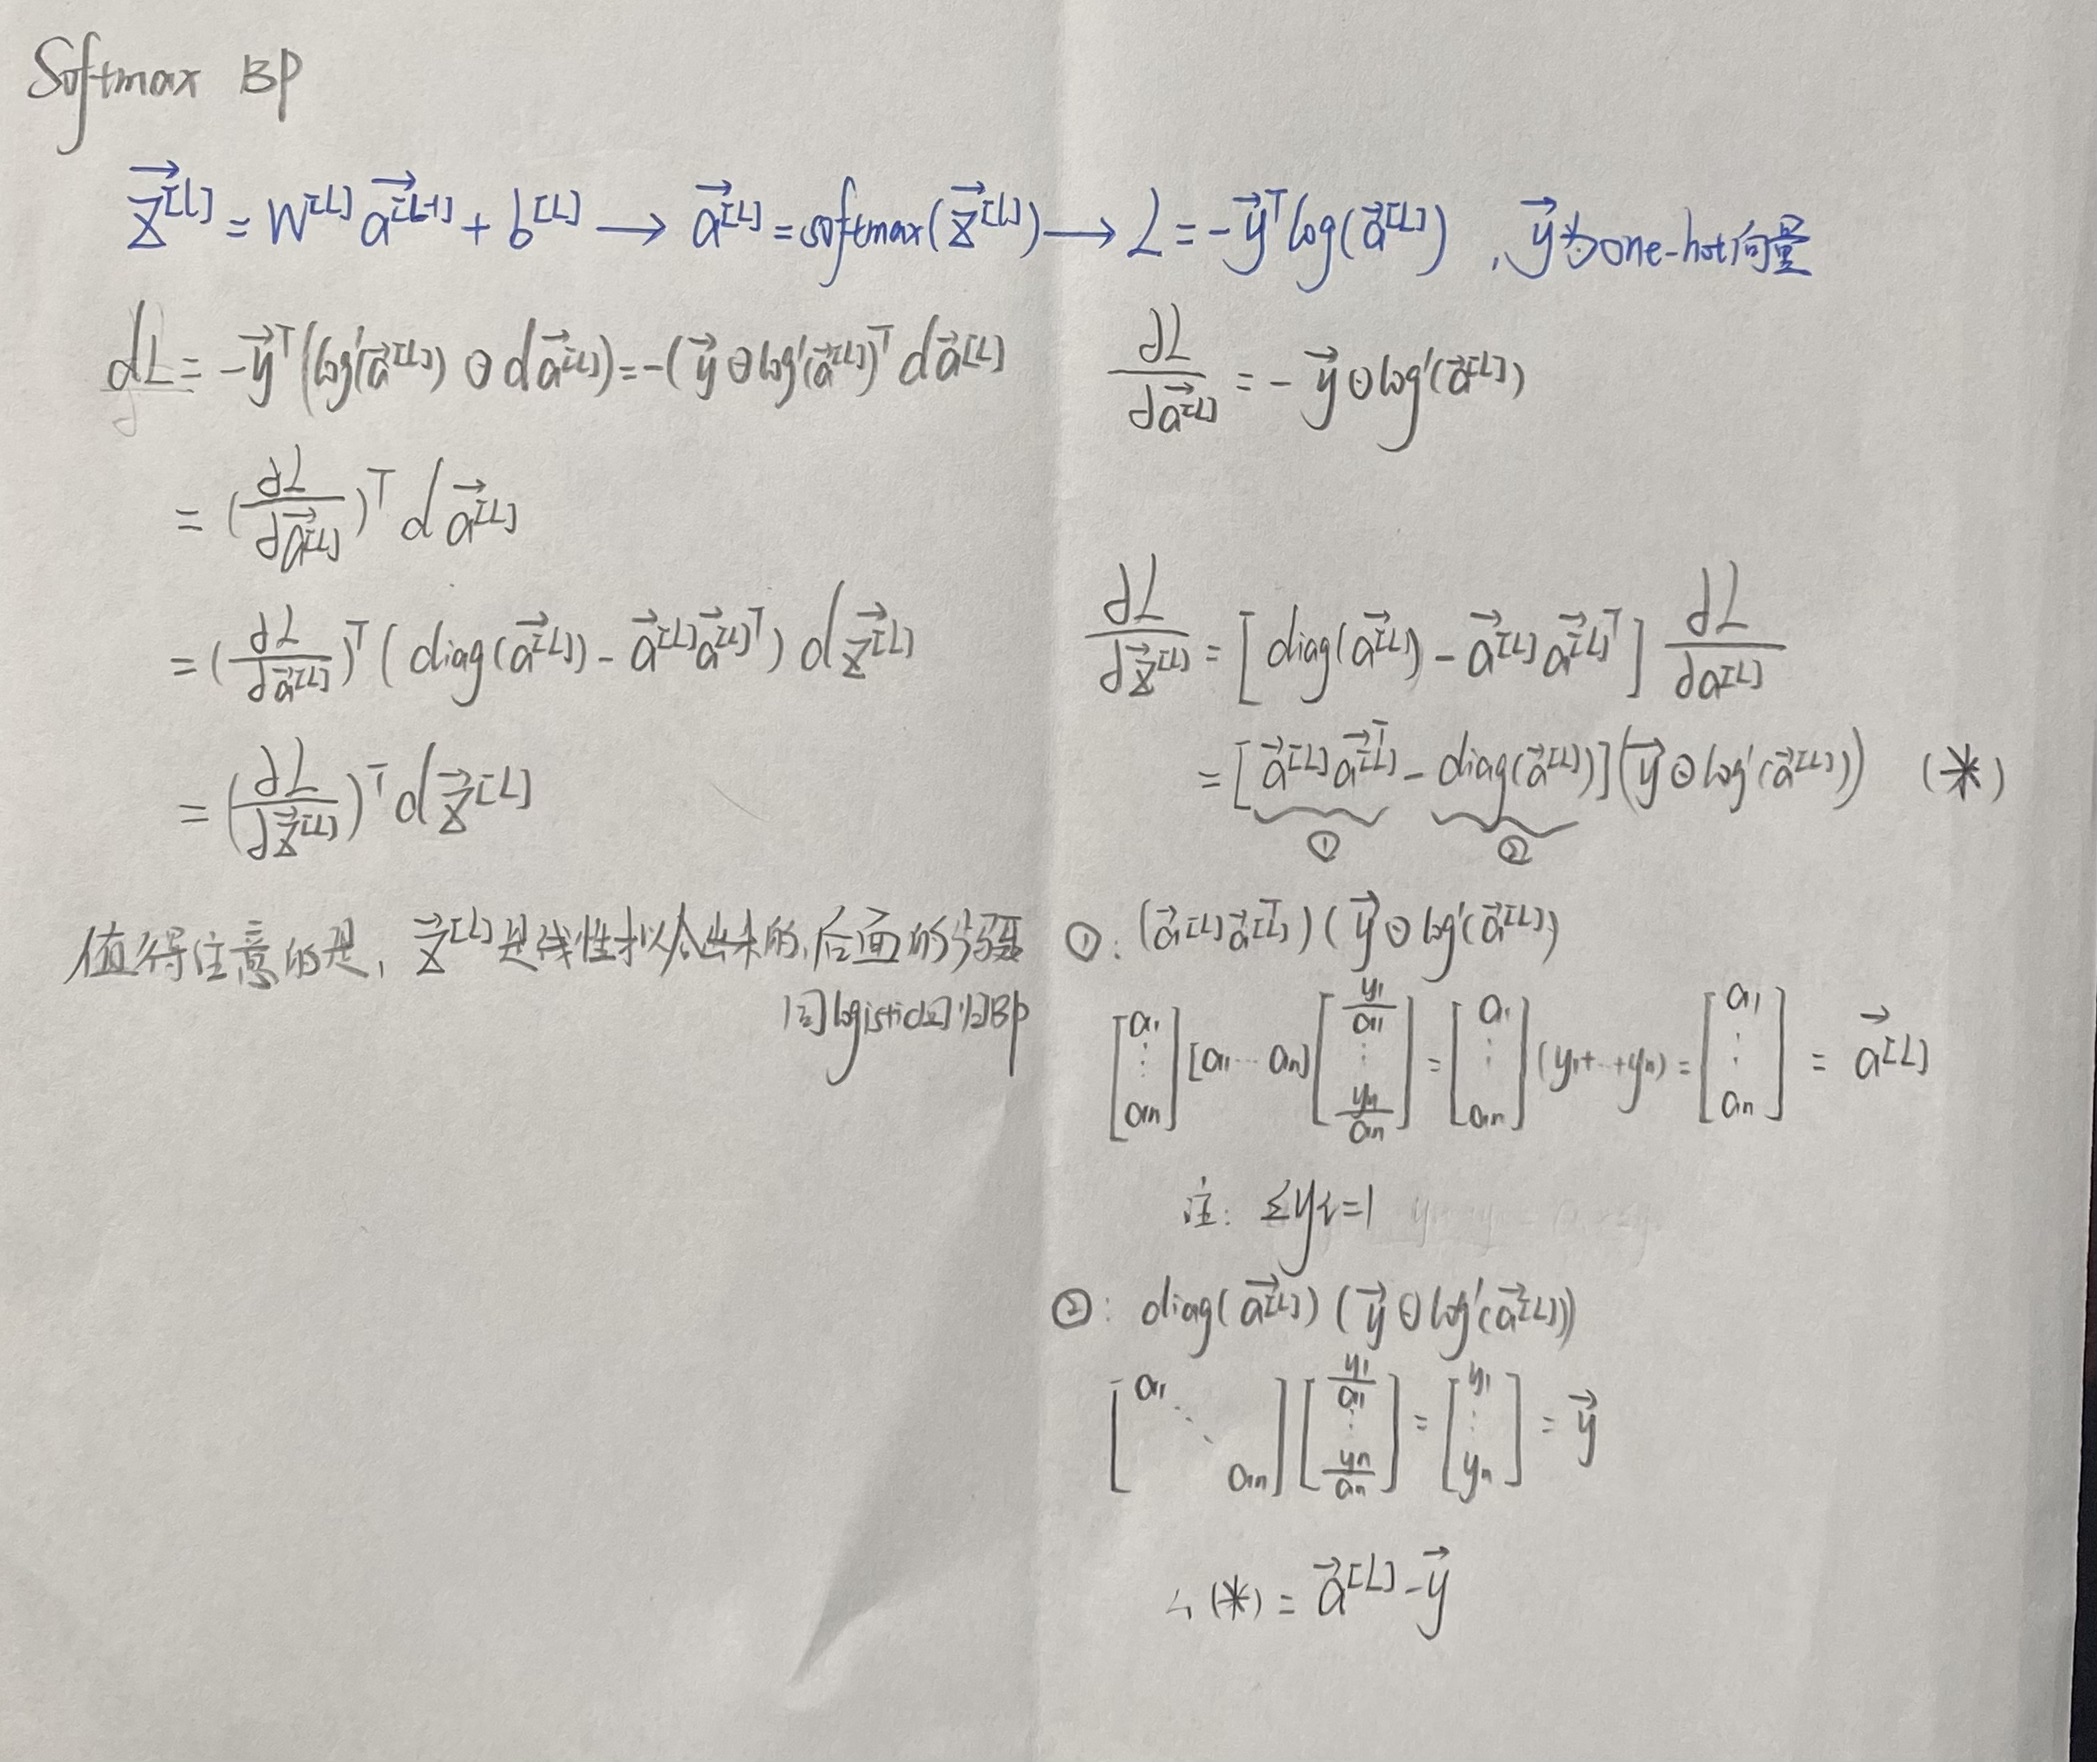 Softmax BP
$\vec{z}^{[L]} = W^{[L]} \vec{a}^{[L-1]} + b^{[L]} \longrightarrow \vec{a}^{[L]} = softmax(\vec{z}^{[L]}) \longrightarrow L = -\vec{y}^T log(\vec{a}^{[L]})$ , $\vec{y}$为one-hot向量
$dL = -\vec{y}^T (log'(\vec{a}^{[L]}) \odot d\vec{a}^{[L]}) = -(\vec{y} \odot log'(\vec{a}^{[L]}))^T d\vec{a}^{[L]}$
$= (\frac{\partial L}{\partial \vec{a}^{[L]}})^T d\vec{a}^{[L]}$
$= (\frac{\partial L}{\partial \vec{a}^{[L]}})^T (diag(\vec{a}^{[L]}) - \vec{a}^{[L]} \vec{a}^{[L]T}) d\vec{z}^{[L]}$
$= (\frac{\partial L}{\partial \vec{z}^{[L]}})^T d\vec{z}^{[L]}$
值得注意的是, $\vec{z}^{[L]}$是线性拟合出来的,后面的步骤
同logistic回归BP
$\frac{\partial L}{\partial \vec{a}^{[L]}} = -\vec{y} \odot log'(\vec{a}^{[L]})$
$\frac{\partial L}{\partial \vec{z}^{[L]}} = [diag(\vec{a}^{[L]}) - \vec{a}^{[L]} \vec{a}^{[L]T}] \frac{\partial L}{\partial a^{[L]}}$
$= [\vec{a}^{[L]} \vec{a}^{[L]T} - diag(\vec{a}^{[L]})] (\vec{y} \odot log'(\vec{a}^{[L]}))$ (*)
① ②
①: $(\vec{a}^{[L]} \vec{a}^{[L]T}) (\vec{y} \odot log'(\vec{a}^{[L]}))$
$\begin{bmatrix} a_1 \\ \vdots \\ a_n \end{bmatrix} [a_1 \cdots a_n] \begin{bmatrix} \frac{y_1}{a_1} \\ \vdots \\ \frac{y_n}{a_n} \end{bmatrix} = \begin{bmatrix} a_1 \\ \vdots \\ a_n \end{bmatrix} (y_1 + \cdots + y_n) = \begin{bmatrix} a_1 \\ \vdots \\ a_n \end{bmatrix} = \vec{a}^{[L]}$
注: $\Sigma y_i = 1$
②: $diag(\vec{a}^{[L]}) (\vec{y} \odot log'(\vec{a}^{[L]}))$
$\begin{bmatrix} a_1 & & \\ & \ddots & \\ & & a_n \end{bmatrix} \begin{bmatrix} \frac{y_1}{a_1} \\ \vdots \\ \frac{y_n}{a_n} \end{bmatrix} = \begin{bmatrix} y_1 \\ \vdots \\ y_n \end{bmatrix} = \vec{y}$
∴ (*) = $\vec{a}^{[L]} - \vec{y}$